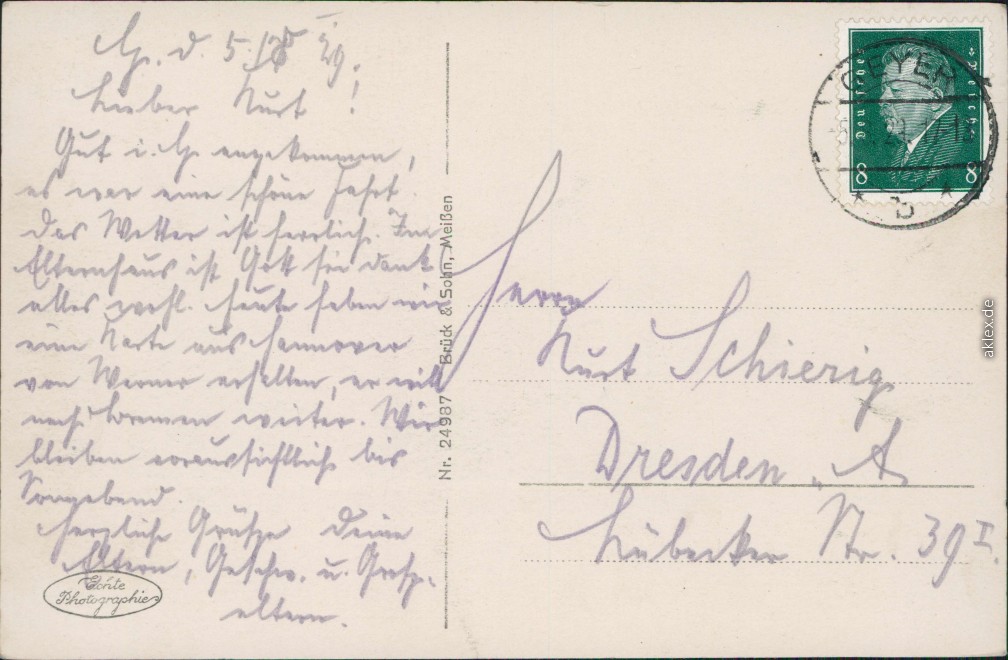 d. 5. 29.
Lieber Kurt!
Gut i. angekommen,
es war eine schöne Fahrt.
Das Wetter ist herrlich. Im
Elternhaus ist Gott sei dank
alles wohl. Heute haben wir
eine Karte aus Hannover
von Werner erhalten, er will
nach Bremen weiter. Wir
bleiben voraussichtlich bis
Herzliche Grüße Deine
Eltern, Geschw. u. Groß-
eltern.
Echte
Photographie
Nr. 24987 Brück & Sohn, Meißen
GEYER
Deutsches Reich
8 8
b
Herrn
Kurt Schierig
Dresden „A
Lübecker Str. 39 I.
aklex.de